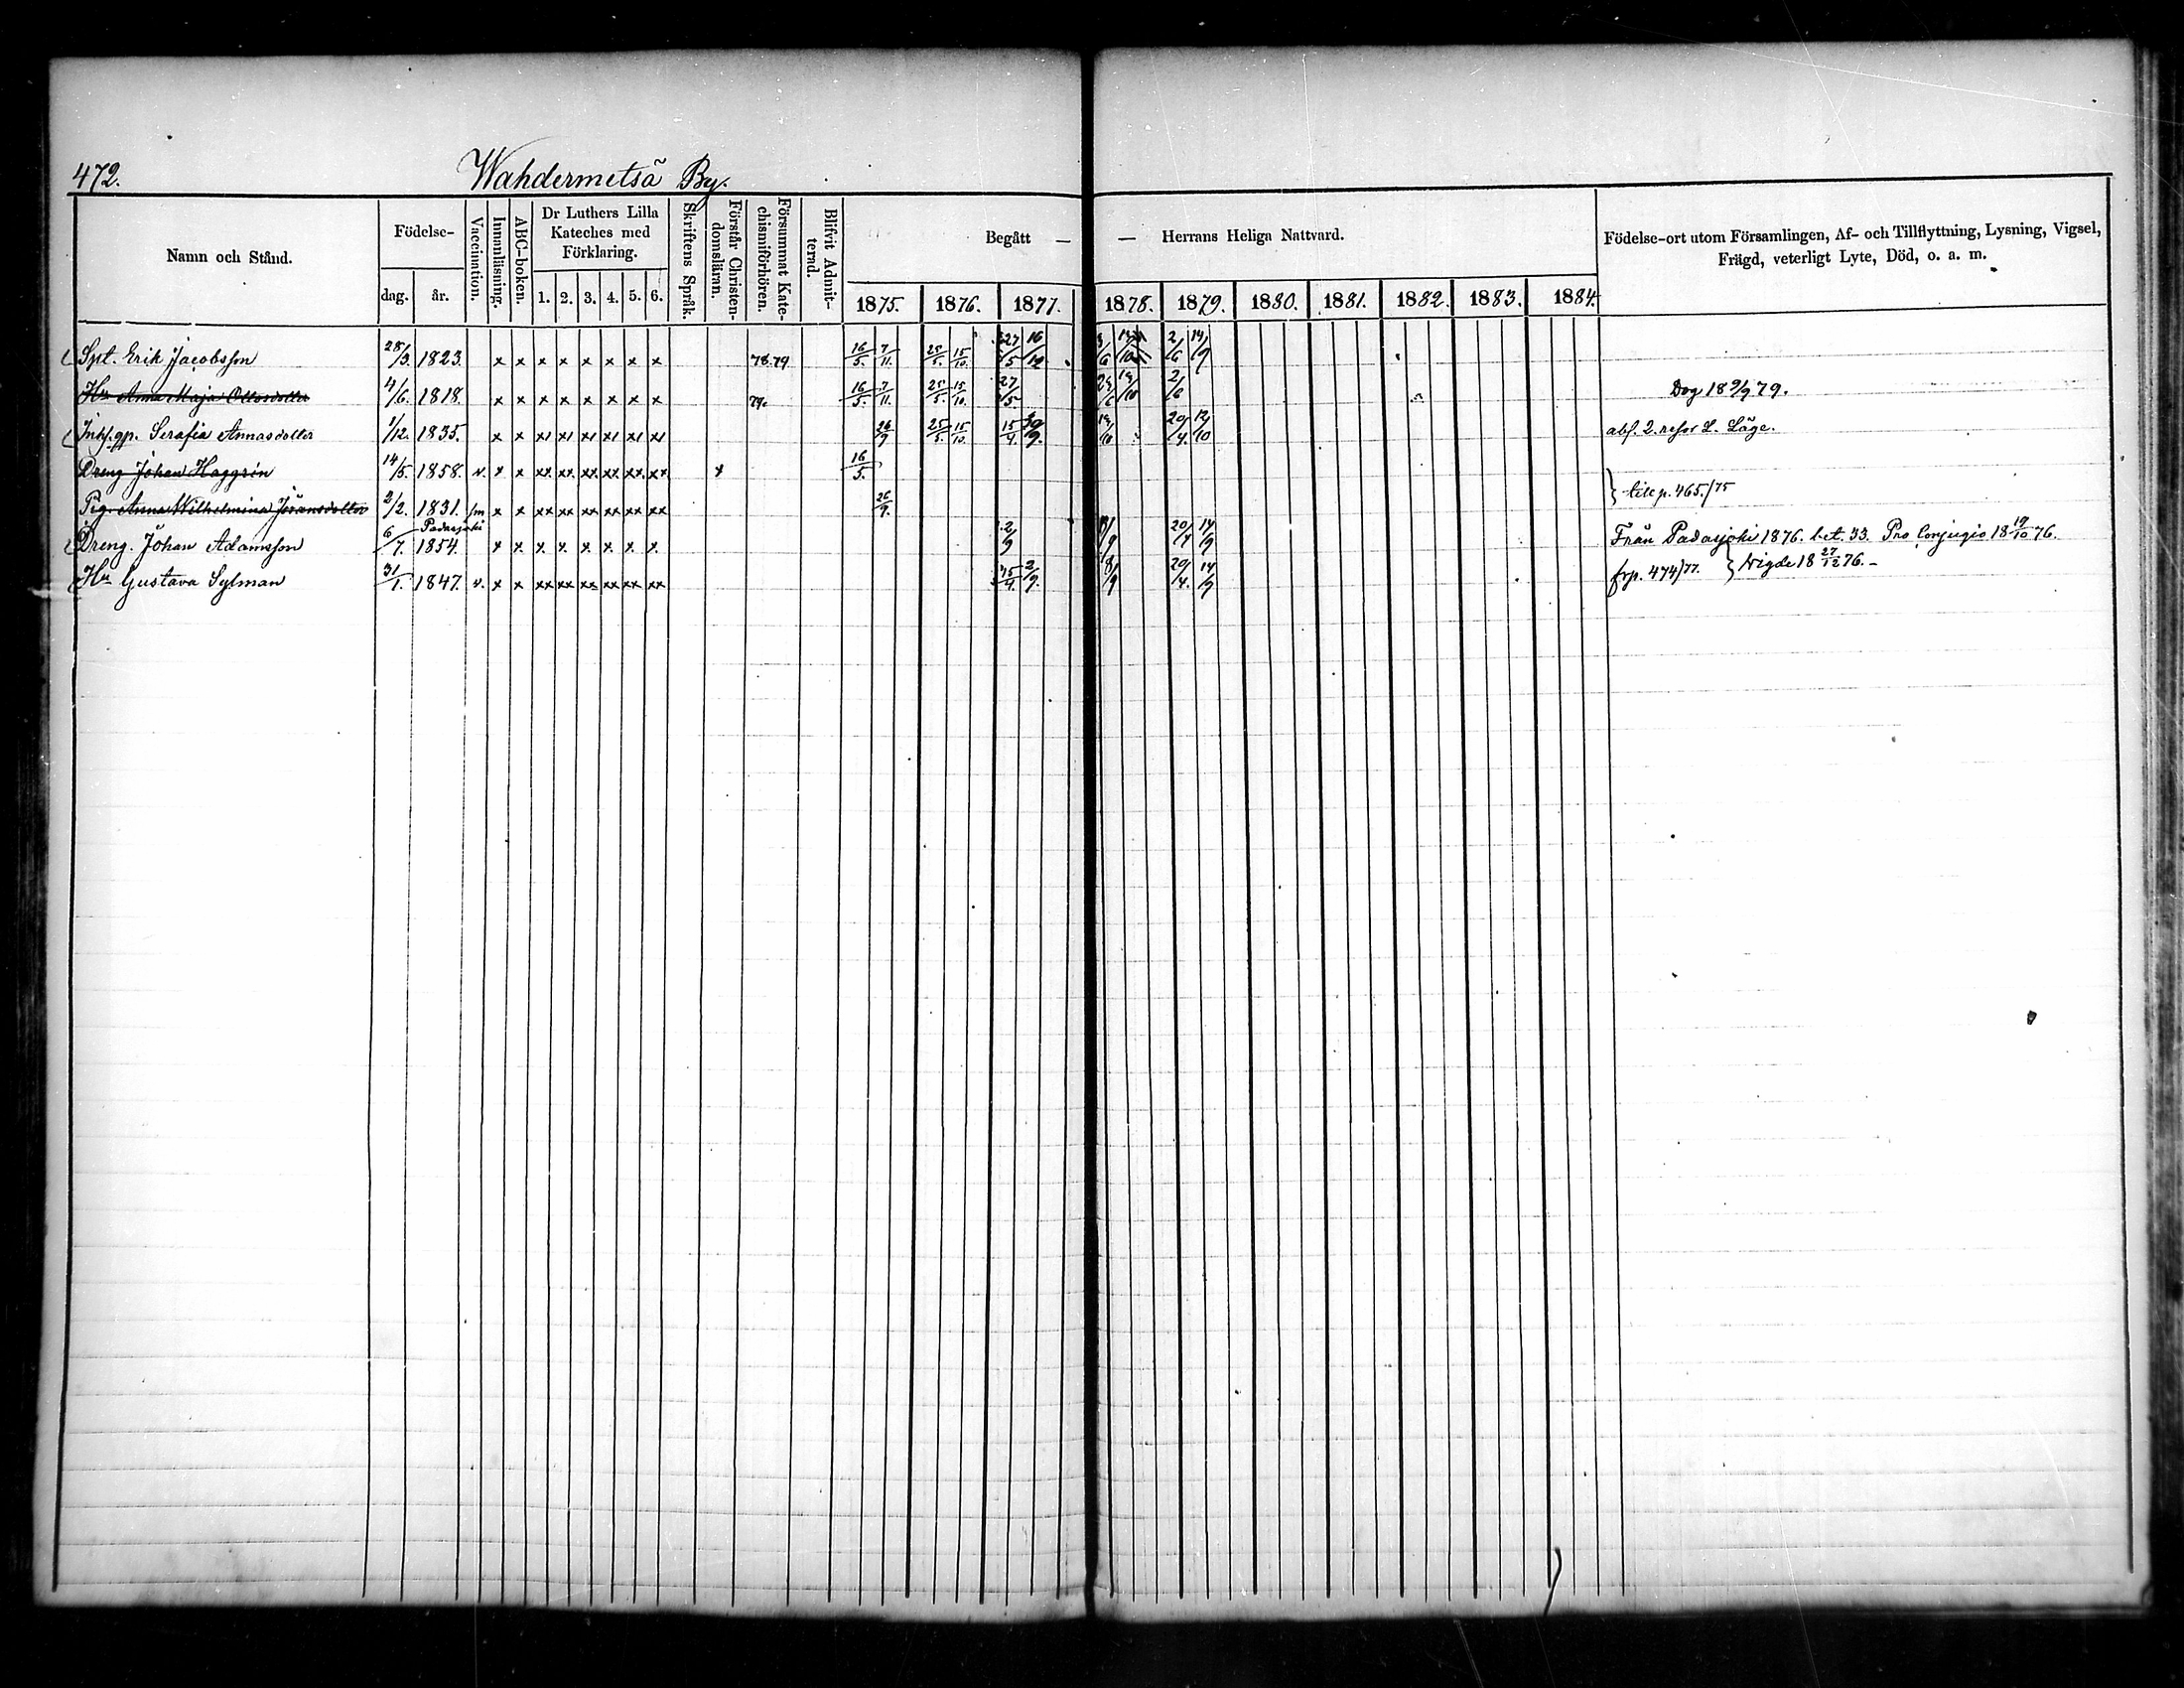 472. Wahdermetsä By.
Namn och Stånd. Födelse- dag. år. Vaccination. Innanläsning. ABC-boken. Dr Luthers Lilla Kateches med Förklaring. 1. 2. 3. 4. 5. 6. Skriftens Språk. Förstår Christendomsläran. Försummat Katechismiförhören. Blifvit Admitterad. Begått — — Herrans Heliga Nattvard. 1875. 1876. 1877. 1878. 1879. 1880. 1881. 1882. 1883. 1884. Födelse-ort utom Församlingen, Af- och Tillflyttning, Lysning, Vigsel, Frägd, veterligt Lyte, Död, o. a. m.
Spt. Erik Jacobsson 28/3 1823. x x x x x x x x 78.79 16/5. 7/11. 25/5. 15/10. 27/5 2/6
Hu Anna Maja Ottosdotter 4/6. 1818. x x x x x x x x 79. 16/5. 7/11. 25/5. 15/10. 27/5. 2/6 Dog 18 9/9 79.
Inhs.gp. Serafia Annasdotter 1/12. 1835. x x x x x x x x 26/9 25/5. 15/10. 15/4. 20/4. 12/10 abs. 2. resor L. Läge.
Dreng Johan Haggrén 14/5 1858. v. x x xx xx xx xx xx xx x 16/5.
Pig. Anna Wilhelmina Göransdotter 2/2. 1831. x x xx xx xx xx xx xx 26/9. } till p. 465./75
Dreng. Johan Adamsson 6/7. Padasjoki 1854. x x. x. x. x. x. x. x. 2/9 8/9 20/4 14/9 Från Padasjoki 1876. bet. 33. Pro Conjugio 18 19/10 76.
Hu Gustava Sylman 31/1. 1847. v. x x xx xx xx xx xx xx 15/4. 2/9. 8/9 20/4. 14/9 frp. 474/77. } Wigde 18 27/12 76.-